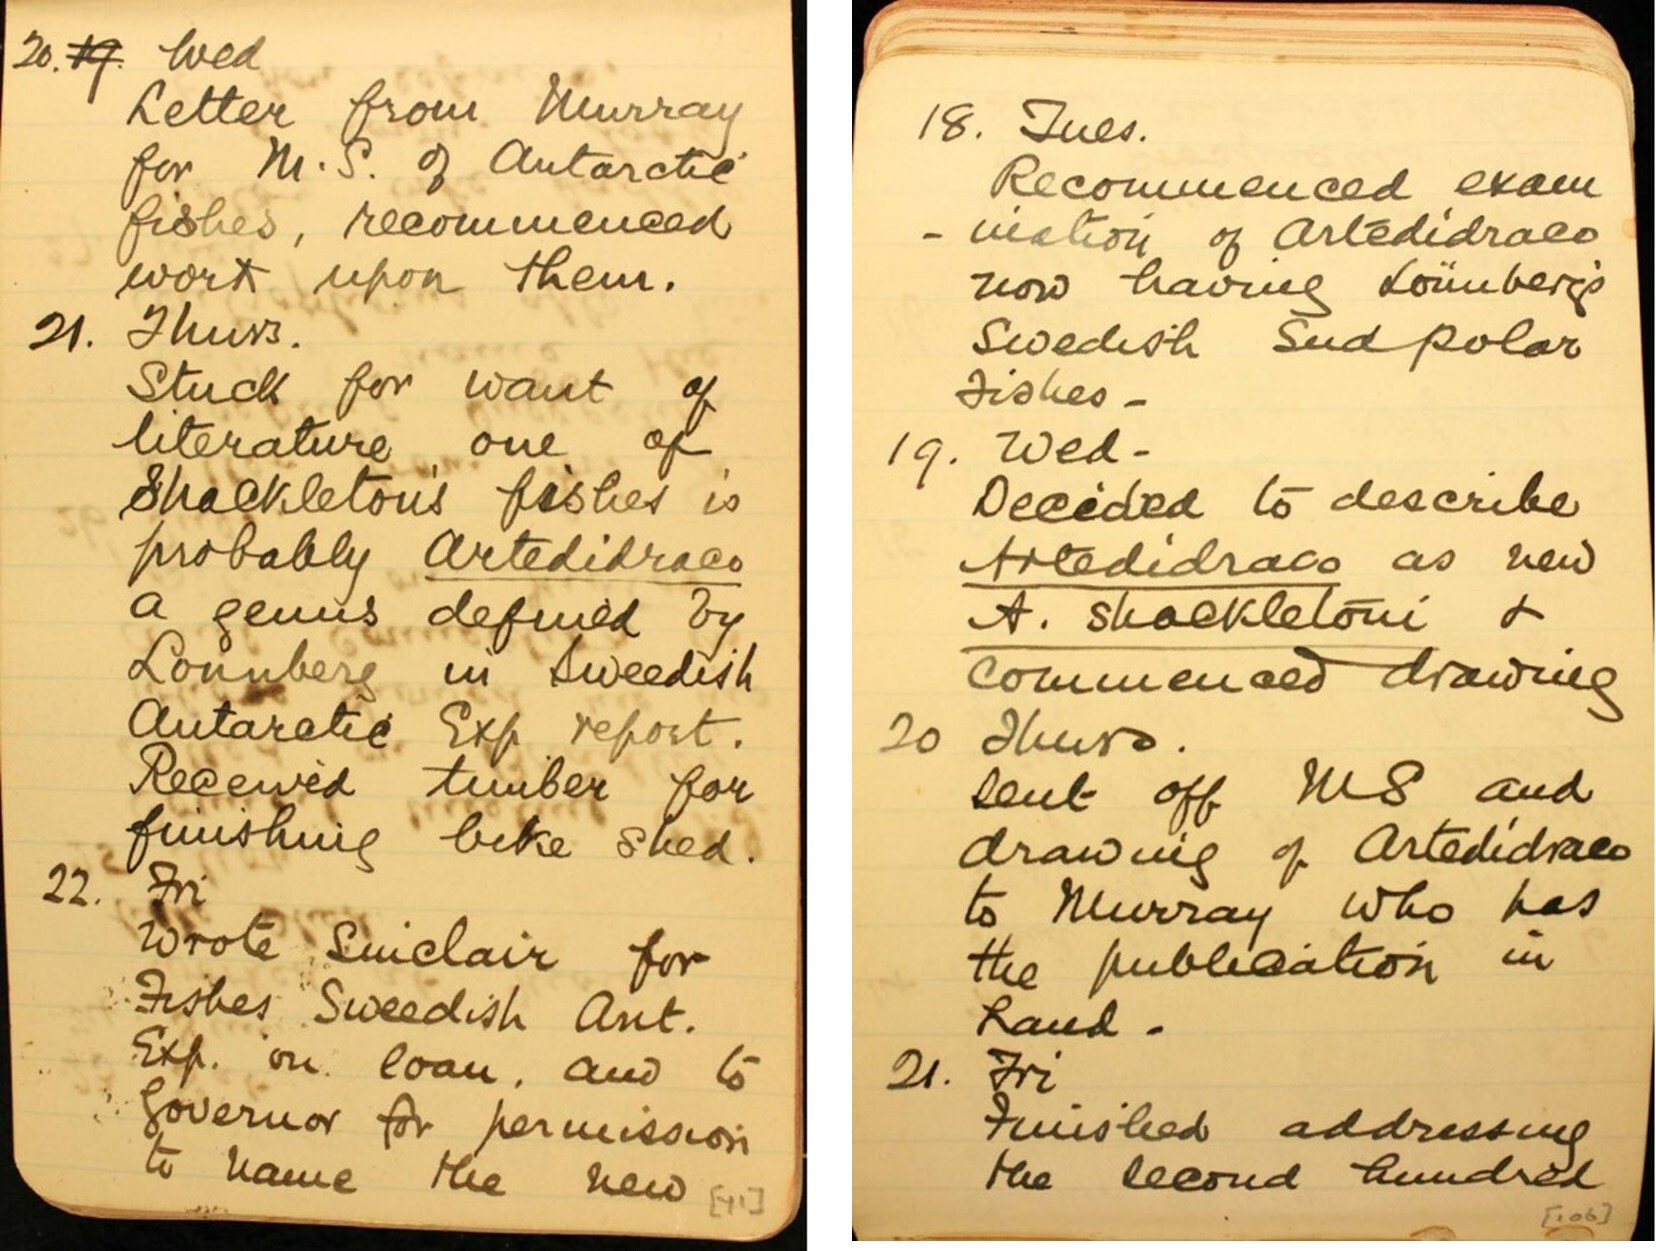 20. 19. Wed
Letter from Murray
for M.S. of Antarctic
fishes, recommenced
work upon them.
21. Thurs.
Stuck for want of
literature one of
Shackleton's fishes is
probably Artedidraco
a genus defined by
Lönnberg in Sweedish
Antarctic Exp report.
Received timber for
finishing bike shed.
22. Fri
Wrote Sinclair for
Fishes Sweedish Ant.
Exp. on loan, and to
Governor for permission
to name the new
[41]
18. Tues.
Recommenced exam
- ination of Artedidraco
now having Lönnberg's
Swedish Sud polar
Fishes -
19. Wed -
Decided to describe
Artedidraco as new
A. shackletoni &
commenced drawing
20 Thurs.
Sent off MS and
drawing of Artedidraco
to Murray who has
the publication in
hand -
21. Fri
Finished addressing
the second hundred
[106]